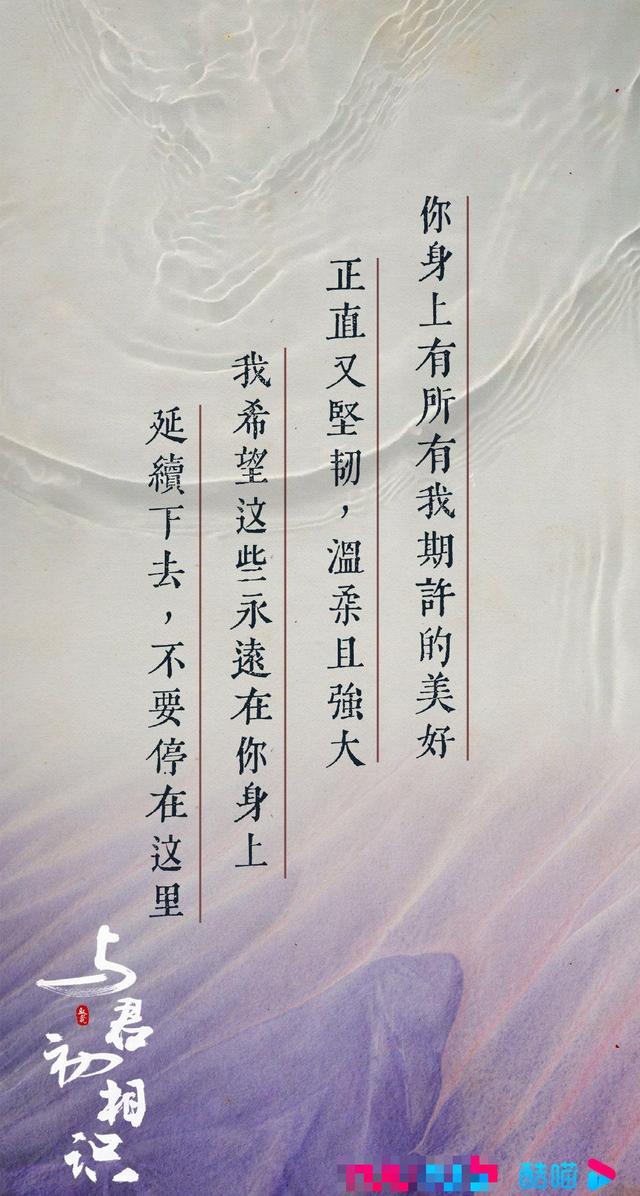 你身上有所有我期許的美好
正直又堅韧，溫柔且強大
我希望这些永遠在你身上
延續下去，不要停在这里
与君初相识
酷喵